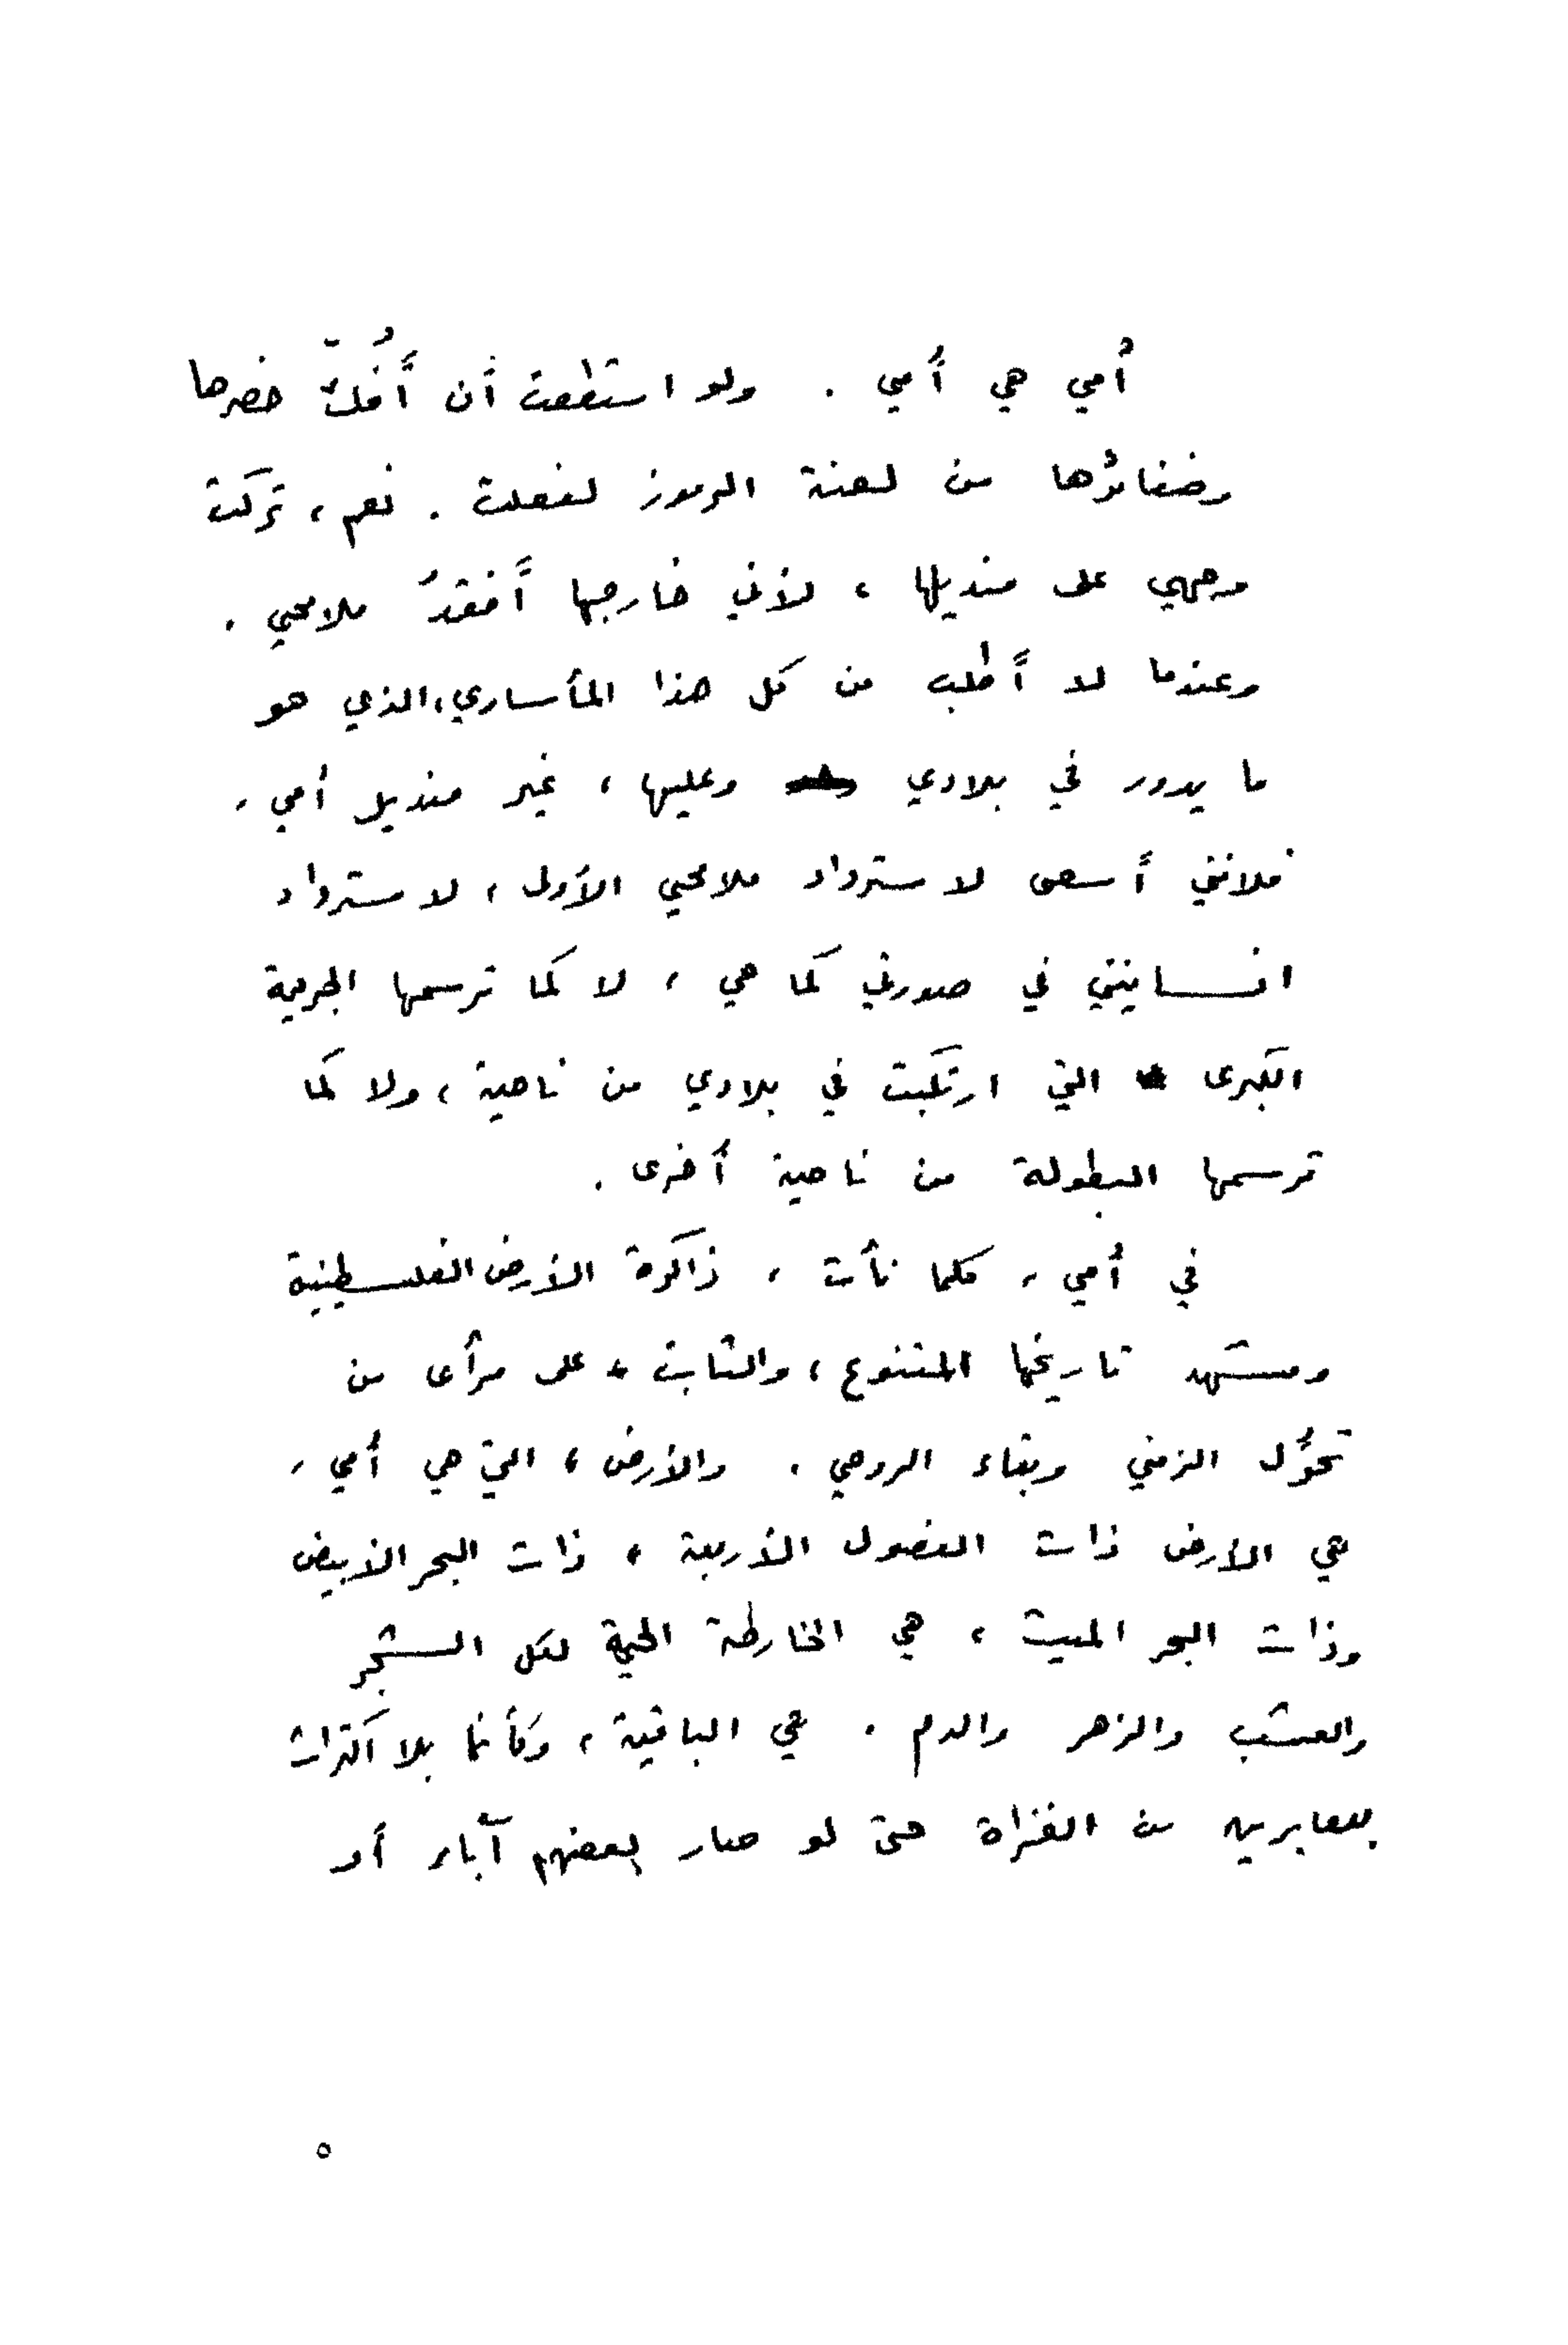 أُمي هي أُمي . ولو استطعت أن أَفُكَّ خصرها
وضفائرُها من لعنة الرموز لفعلت . نعم ، تركت
وجهي على منديلها ، لأني خارجها أَفقدُ ملامحي .
وعندما لا أَطلب من كل هذا المأساوي ، الذي هو
ما يدور في بلادي وعليها ، غير منديل أمي ،
فلانني أَسعى لاسترداد ملامحي الأولى ، لاسترداد
انسانيتي في صورتي كما هي ، لا كما ترسمها الجريمة
الكبرى التي ارتكبت في بلادي من ناحية ، ولا كما
ترسمها البطولة من ناحية أُخرى .
في أُمي ، كلما نأت ، ذاكرة الأرض الفلسطينية
ومشهد تاريخها المتنوع ، والثابت ، على مرأى من
تحوُّل الزمني وبقاء الروحي . والأرض ، التي هي أُمي ،
هي الأرض ذات الفصول الأربعة ، ذات البحر الأبيض
وذات البحر الميت ، هي الخارطة الحية لكل الشجر
والعشب والزهر والدم . هي الباقية ، وكأنما بلا اكتراث
بالعابرين من الغزاة حتى لو صار بعضهم آباء أو
٥